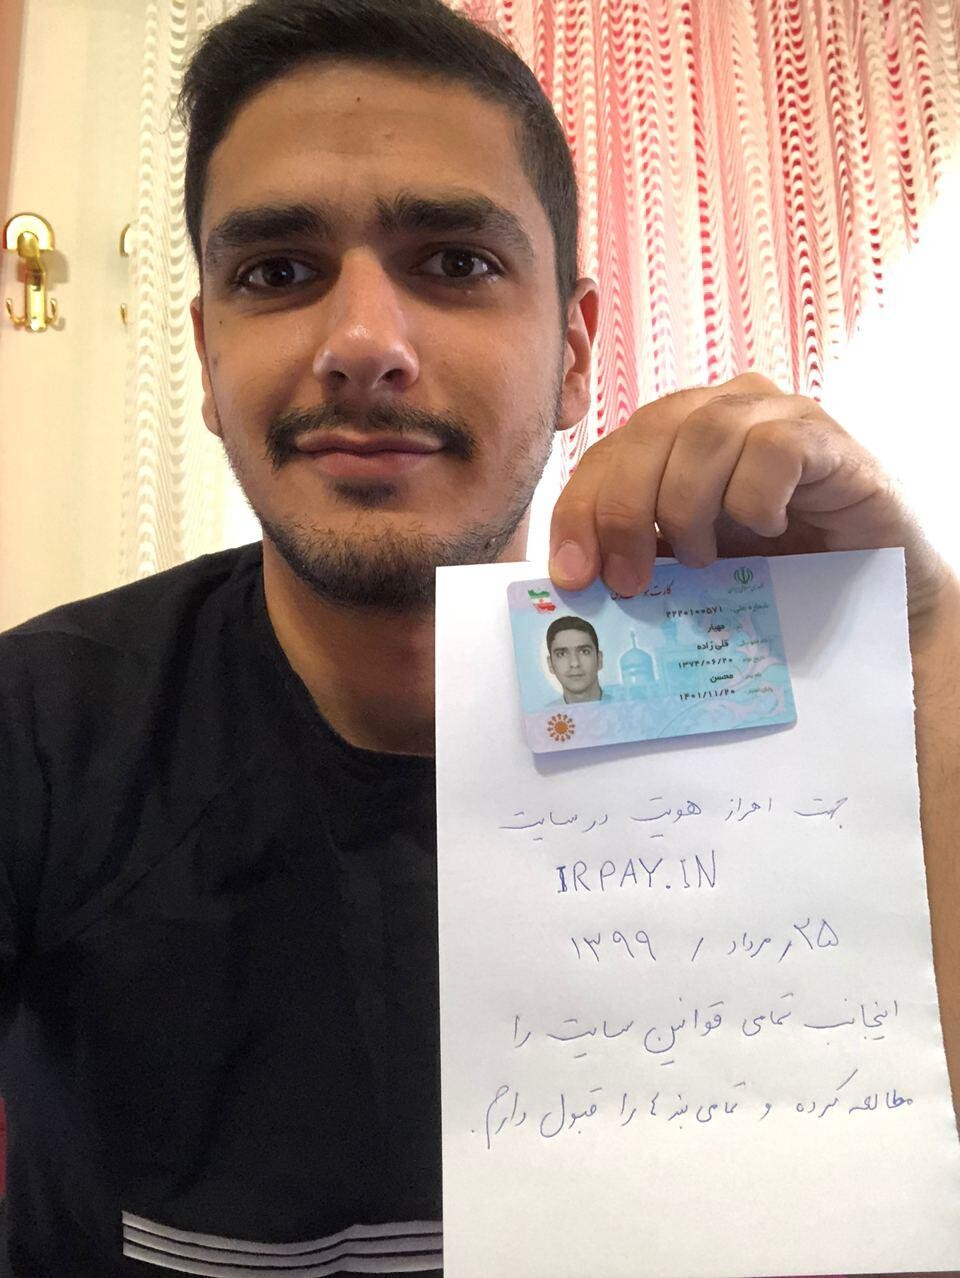 کارت
شماره ملی: ۲۲۲۰۱۰۰۵۷۱
نام: مهیار
نام خانوادگی: قلی زاده
تاریخ تولد: ۱۳۷۴/۰۶/۲۰
نام پدر: محسن
پایان اعتبار: ۱۴۰۱/۱۱/۲۰
جهت احراز هویت در سایت
IRPAY.IN
۲۵ / مرداد / ۱۳۹۹
اینجانب تمامی قوانین سایت را
مطالعه کرده و تمامی بندها را قبول دارم.